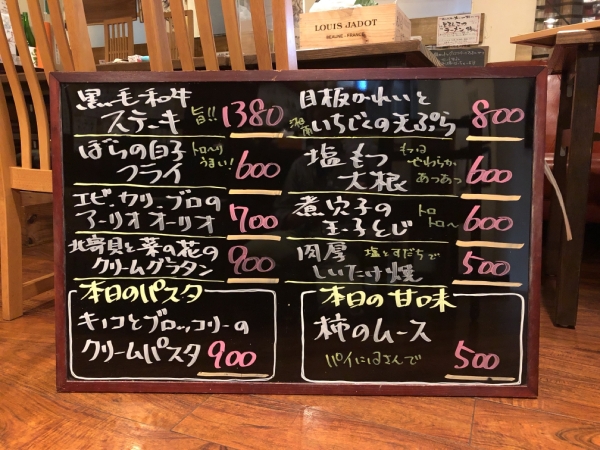 LOUIS JADOT
BEAUNE - FRANCE
黒毛和牛
ステーキ 旨!! 1380
ぼらの白子 トロ〜り
フライ うまい! 600
エビ、カリ、ブロの
アーリオオーリオ 700
北寄貝と菜の花の
クリームグラタン 900
本日のパスタ
キノコとブロッコリーの
クリームパスタ 900
目板かれいと
湘南いちじくの天ぷら 800
塩もつ もつは やわらか
大根 あつあつ 600
煮穴子の トロ
玉子とじ トロ〜 600
肉厚 塩とすだちで
しいたけ焼 500
本日の甘味
柿のムース
パイにはさんで 500